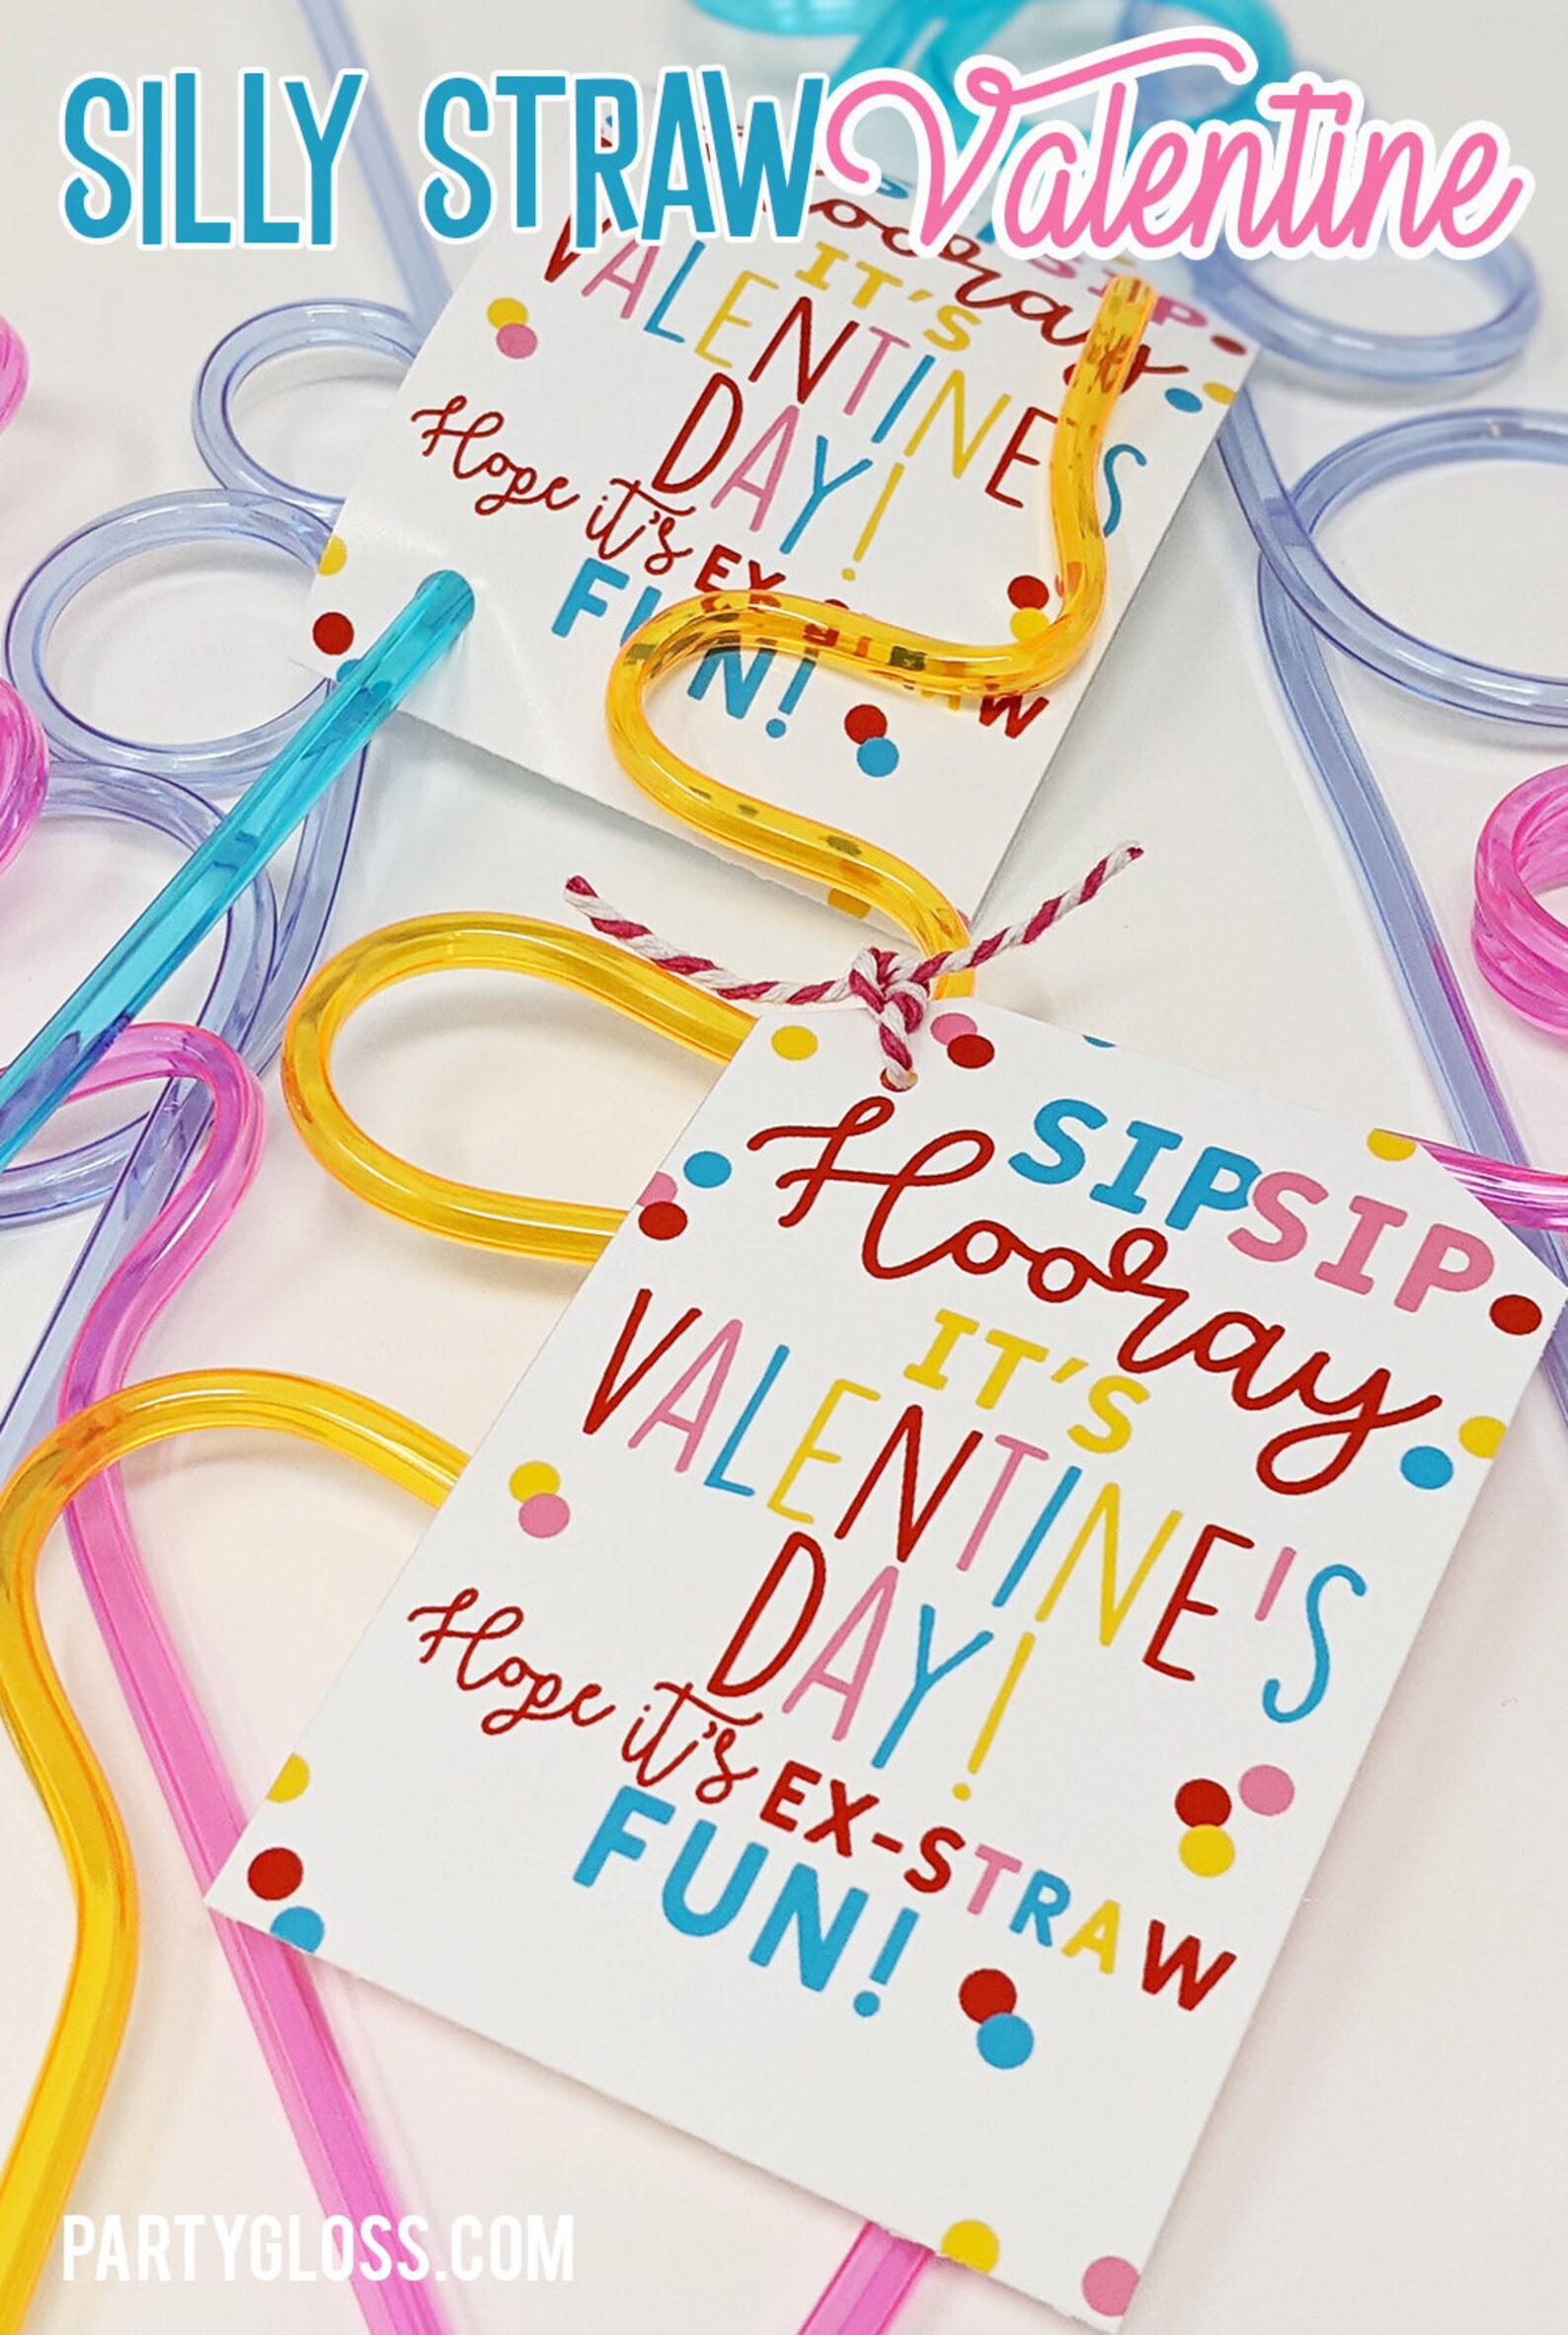 SILLY STRAW Valentine
Hooray
IT'S
VALENTINE'S
DAY!
Hope it's EX
FUN!
SIP SIP
Hooray
IT'S
VALENTINE'S
DAY!
Hope it's EX-STRAW
FUN!
PARTYGLOSS.COM